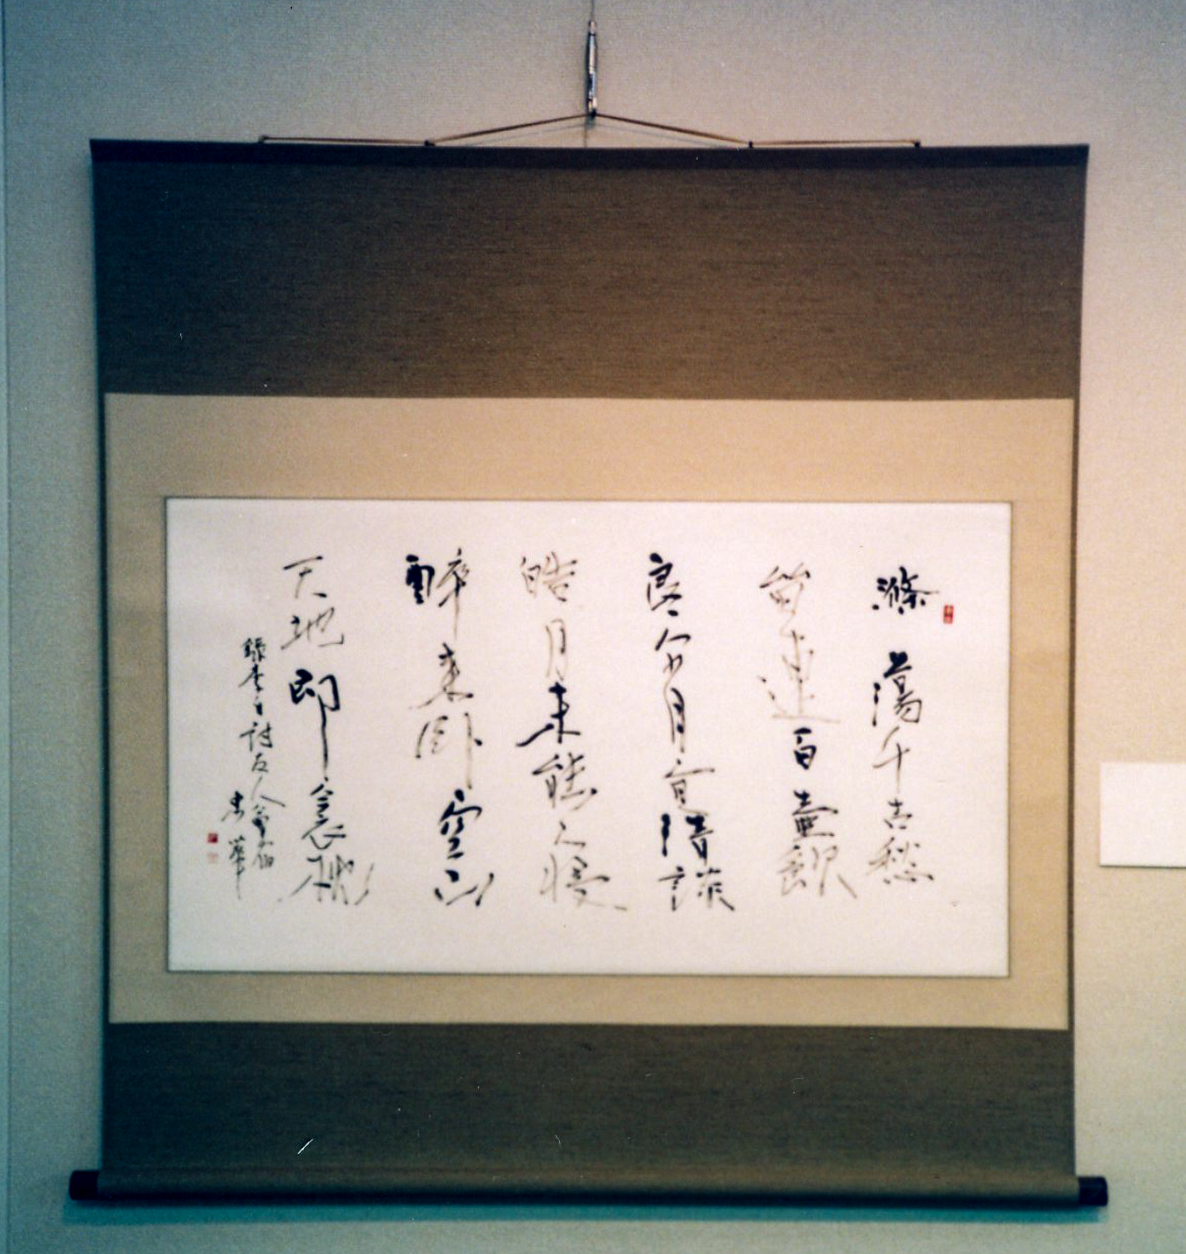 滌蕩千古愁
留連百壺飲
良宵宜清談
皓月未能寢
醉来臥空山
天地即衾枕
録李白詩友人會宿